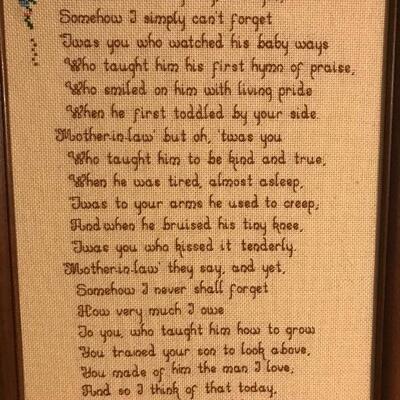 Somehow I simply can't forget
'Twas you who watched his baby ways
Who taught him his first hymn of praise,
Who smiled on him with living pride
When he first toddled by your side.
"Mother-in-law" but oh, 'twas you
Who taught him to be kind and true,
When he was tired, almost asleep,
'Twas to your arms he used to creep;
And when he bruised his tiny knee,
'Twas you who kissed it tenderly.
"Mother-in-law" they say, and yet,
Somehow I never shall forget
How very much I owe
To you, who taught him how to grow
You trained your son to look above,
You made of him the man I love,
And so I think of that today,